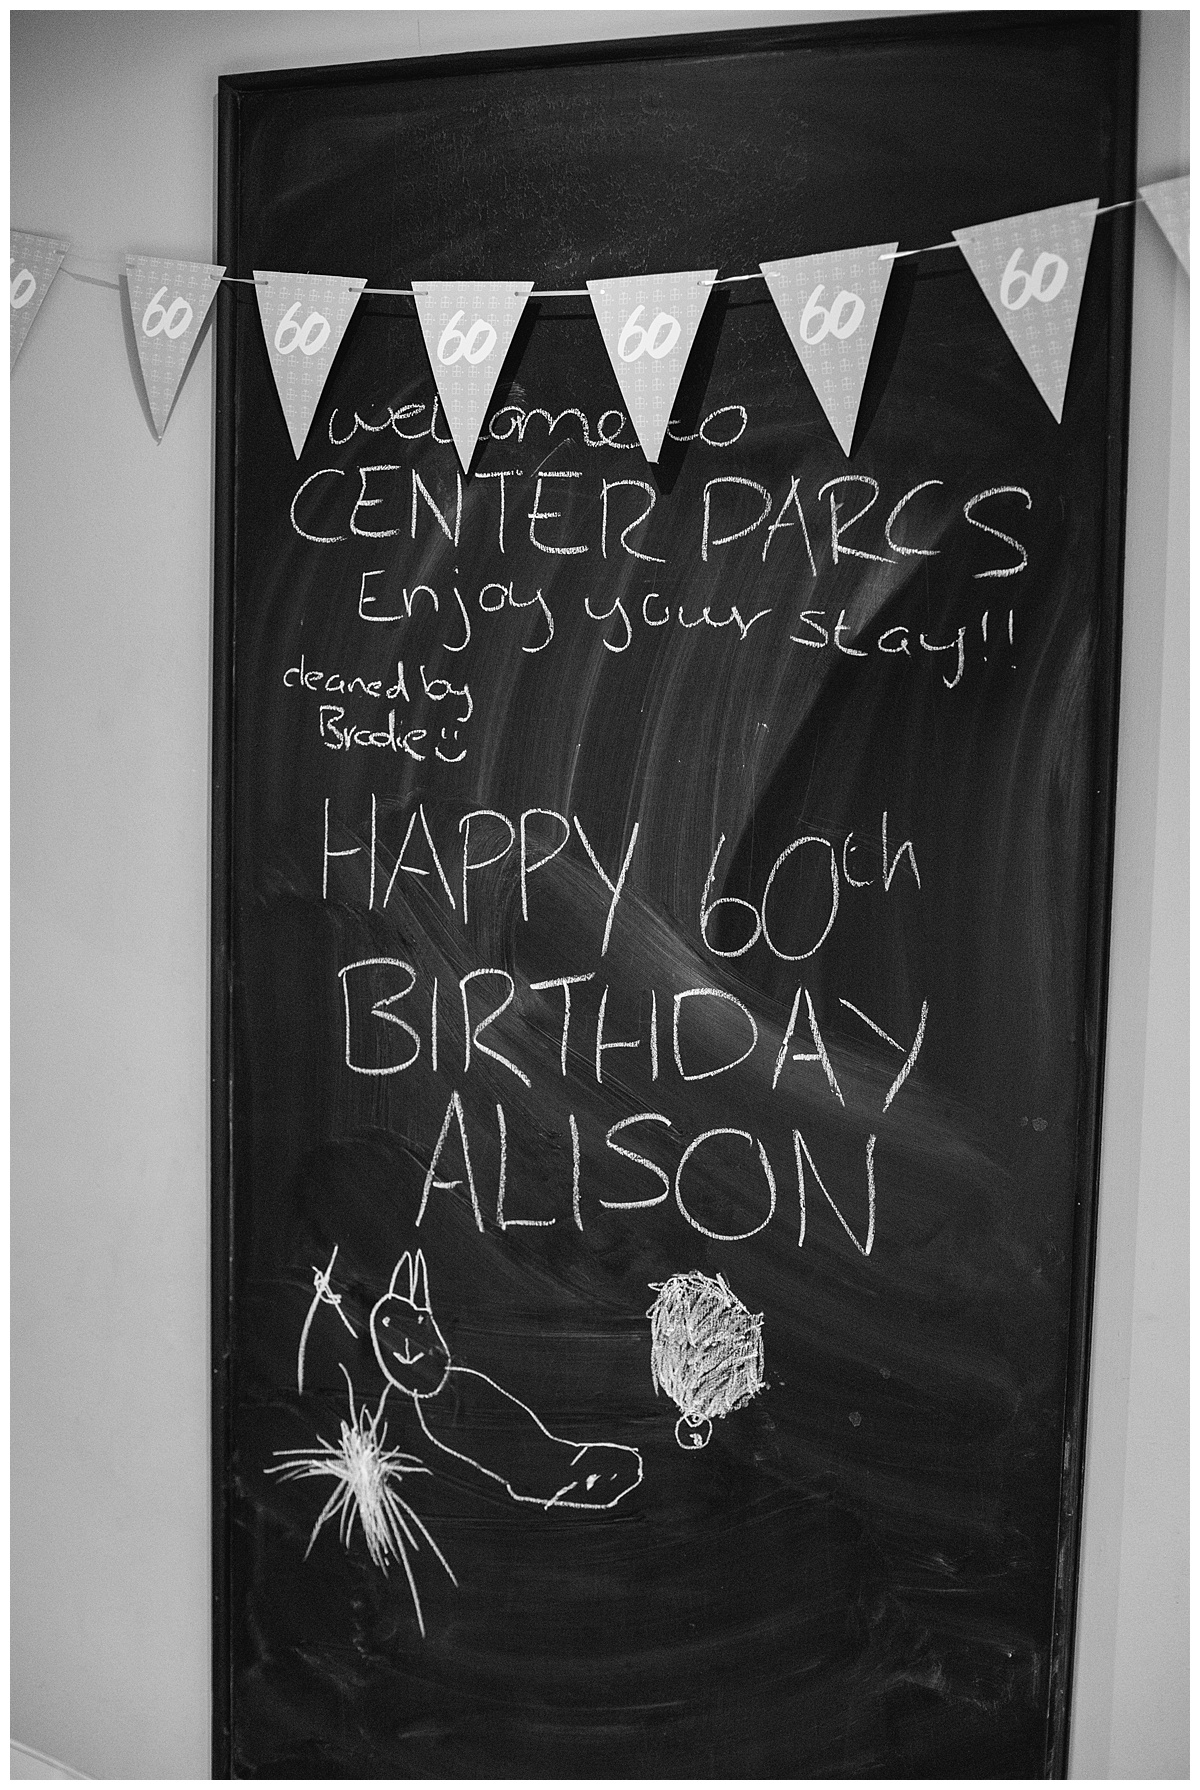 60
60
60
60
60
60
60
welcome to
CENTER PARCS
Enjoy your stay!!
cleaned by
Brodie
HAPPY 60th
BIRTHDAY
ALISON